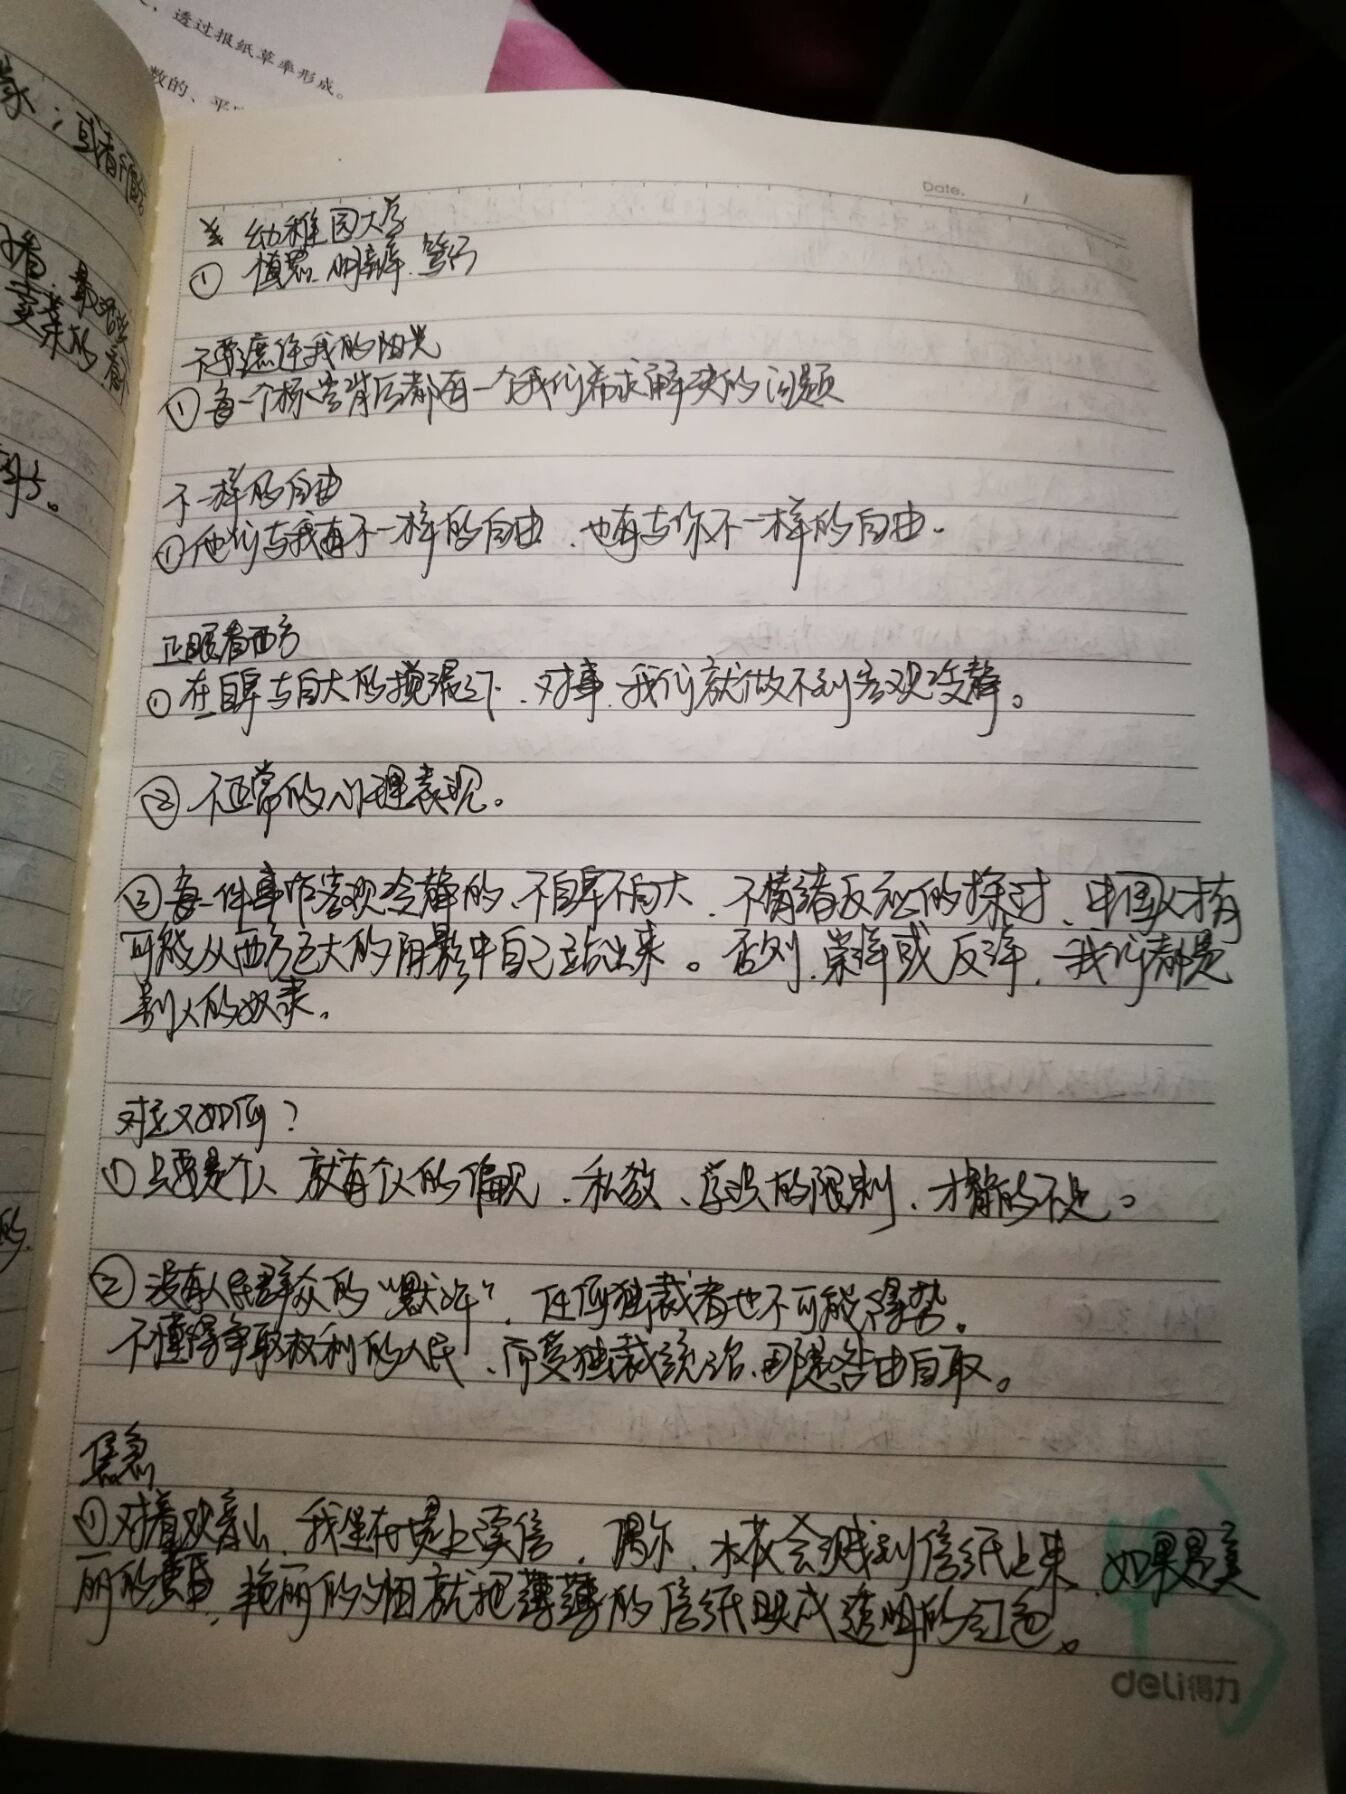 ，透过报纸草率形成。
数的、平
象；或者
看.最
实某的
的.
Date.
幼稚园大学
① 慎思.明辨.笃行
不要遮住我的阳光
①每一个标志背后都有一个我们希求解决的问题
不一样的自由
①他们与我有不一样的自由、也有与你不一样的自由.
正眼看西方
①在自卑与自大的搅混之下、对事、我们就做不到客观冷静。
②不正常的心理表现。
③每一件事作客观冷静的、不自卑不自大、不情绪反应的探讨、中国人才有
可能从西方巨大的阴影中自己站出来。否则、崇洋或反洋、我们都是
别人的奴隶。
对立又如何？
①只要是个人 就有个人的偏见、私欲、学识的限制、才智的不足。
②没有人民群众的“默许”，任何独裁者也不可能得势。
不懂得争取权利的人民、而受独裁统治、那是咎由自取。
焦急
①对着观音山、我坐在堤上读信，偶尔、水花会溅到信纸上来、如果是美
丽的黄昏，艳丽的夕阳就把薄薄的信纸映成透明的红色。
deli得力